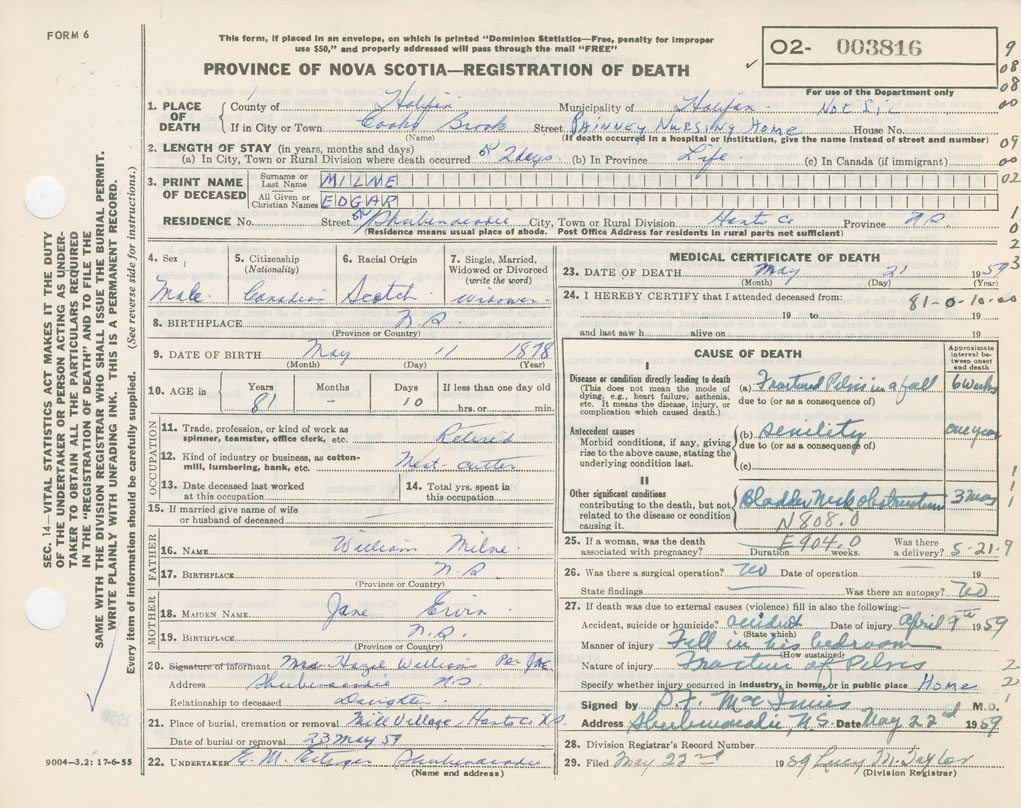 FORM 6
This form, if placed in an envelope, on which is printed "Dominion Statistics—Free, penalty for improper
use $50," and properly addressed will pass through the mail "FREE"
PROVINCE OF NOVA SCOTIA—REGISTRATION OF DEATH
O2- 003816
For use of the Department only
9
08
08
00
09
00
02
1
0
2
3
SEC. 14—VITAL STATISTICS ACT MAKES IT THE DUTY
OF THE UNDERTAKER OR PERSON ACTING AS UNDER-
TAKER TO OBTAIN ALL THE PARTICULARS REQUIRED
IN THE "REGISTRATION OF DEATH" AND TO FILE THE
SAME WITH THE DIVISION REGISTRAR WHO SHALL ISSUE THE BURIAL PERMIT.
WRITE PLAINLY WITH UNFADING INK. THIS IS A PERMANENT RECORD.
Every item of information should be carefully supplied. (See reverse side for instructions.)
1. PLACE OF DEATH County of Halifax Municipality of Halifax
If in City or Town Cooks Brook Street Phinney Nursing Home House No.
(Name) (If death occurred in a hospital or institution, give the name instead of street and number)
2. LENGTH OF STAY (in years, months and days)
(a) In City, Town or Rural Division where death occurred 2 days (b) In Province Life (c) In Canada (if immigrant)
3. PRINT NAME OF DECEASED Surname or Last Name MILNE
All Given or Christian Names EDGAR
RESIDENCE No. Street Shubenacadie City, Town or Rural Division Hants Co Province N.S.
(Residence means usual place of abode. Post Office Address for residents in rural parts not sufficient)
4. Sex Male
5. Citizenship (Nationality) Canadian
6. Racial Origin Scotch
7. Single, Married, Widowed or Divorced (write the word) Widower
8. BIRTHPLACE N.S.
(Province or Country)
9. DATE OF BIRTH May 11 1878
(Month) (Day) (Year)
10. AGE in Years 81 Months - Days 10 If less than one day old hrs. or min.
OCCUPATION
11. Trade, profession, or kind of work as spinner, teamster, office clerk, etc. Retired
12. Kind of industry or business, as cotton-mill, lumbering, bank, etc. Meat-cutter
13. Date deceased last worked at this occupation
14. Total yrs. spent in this occupation
15. If married give name of wife or husband of deceased
FATHER
16. NAME William Milne
17. BIRTHPLACE N.S.
(Province or Country)
MOTHER
18. MAIDEN NAME Jane Ervin
19. BIRTHPLACE N.S.
(Province or Country)
20. Signature of informant Mrs Hazel Williams Per
Address Shubenacadie N.S
Relationship to deceased Daughter
21. Place of burial, cremation or removal Mill Village, Hants Co. N.S.
Date of burial or removal 23 May 59
22. UNDERTAKER E. M. Shubenacadie
(Name and address)
9004—3.2: 17-6-55
MEDICAL CERTIFICATE OF DEATH
23. DATE OF DEATH May 21 1959
(Month) (Day) (Year)
24. I HEREBY CERTIFY that I attended deceased from: 81-0-10-00
19 to 19
and last saw h alive on 19
CAUSE OF DEATH
Approximate interval between onset and death
I
Disease or condition directly leading to death
(This does not mean the mode of dying, e.g., heart failure, asthenia, etc. It means the disease, injury, or complication which caused death.)
(a) Fractured Pelvis in a fall 6 weeks
due to (or as a consequence of)
Antecedent causes
Morbid conditions, if any, giving rise to the above cause, stating the underlying condition last.
(b) Senility one year
due to (or as a consequence of)
(c)
II
Other significant conditions
contributing to the death, but not related to the disease or condition causing it.
Bladder Neck obstruction 3 mos
N808.0
E904.0
1
1
1
25. If a woman, was the death associated with pregnancy? Duration weeks. Was there a delivery? 5-21-9
26. Was there a surgical operation? No Date of operation 19
State findings Was there an autopsy? No
27. If death was due to external causes (violence) fill in also the following:—
Accident, suicide or homicide? accident Date of injury April 9th 1959
(State which)
Manner of injury Fell in his bedroom
(How sustained)
Nature of injury Fracture of Pelvis
Specify whether injury occurred in industry, in home, or in public place Home
2
2
1
Signed by D.F. MacInnes M.D.
Address Shubenacadie, N.S. Date May 22nd 1959
28. Division Registrar's Record Number
29. Filed May 22nd 1959 Lucy M. Taylor
(Division Registrar)